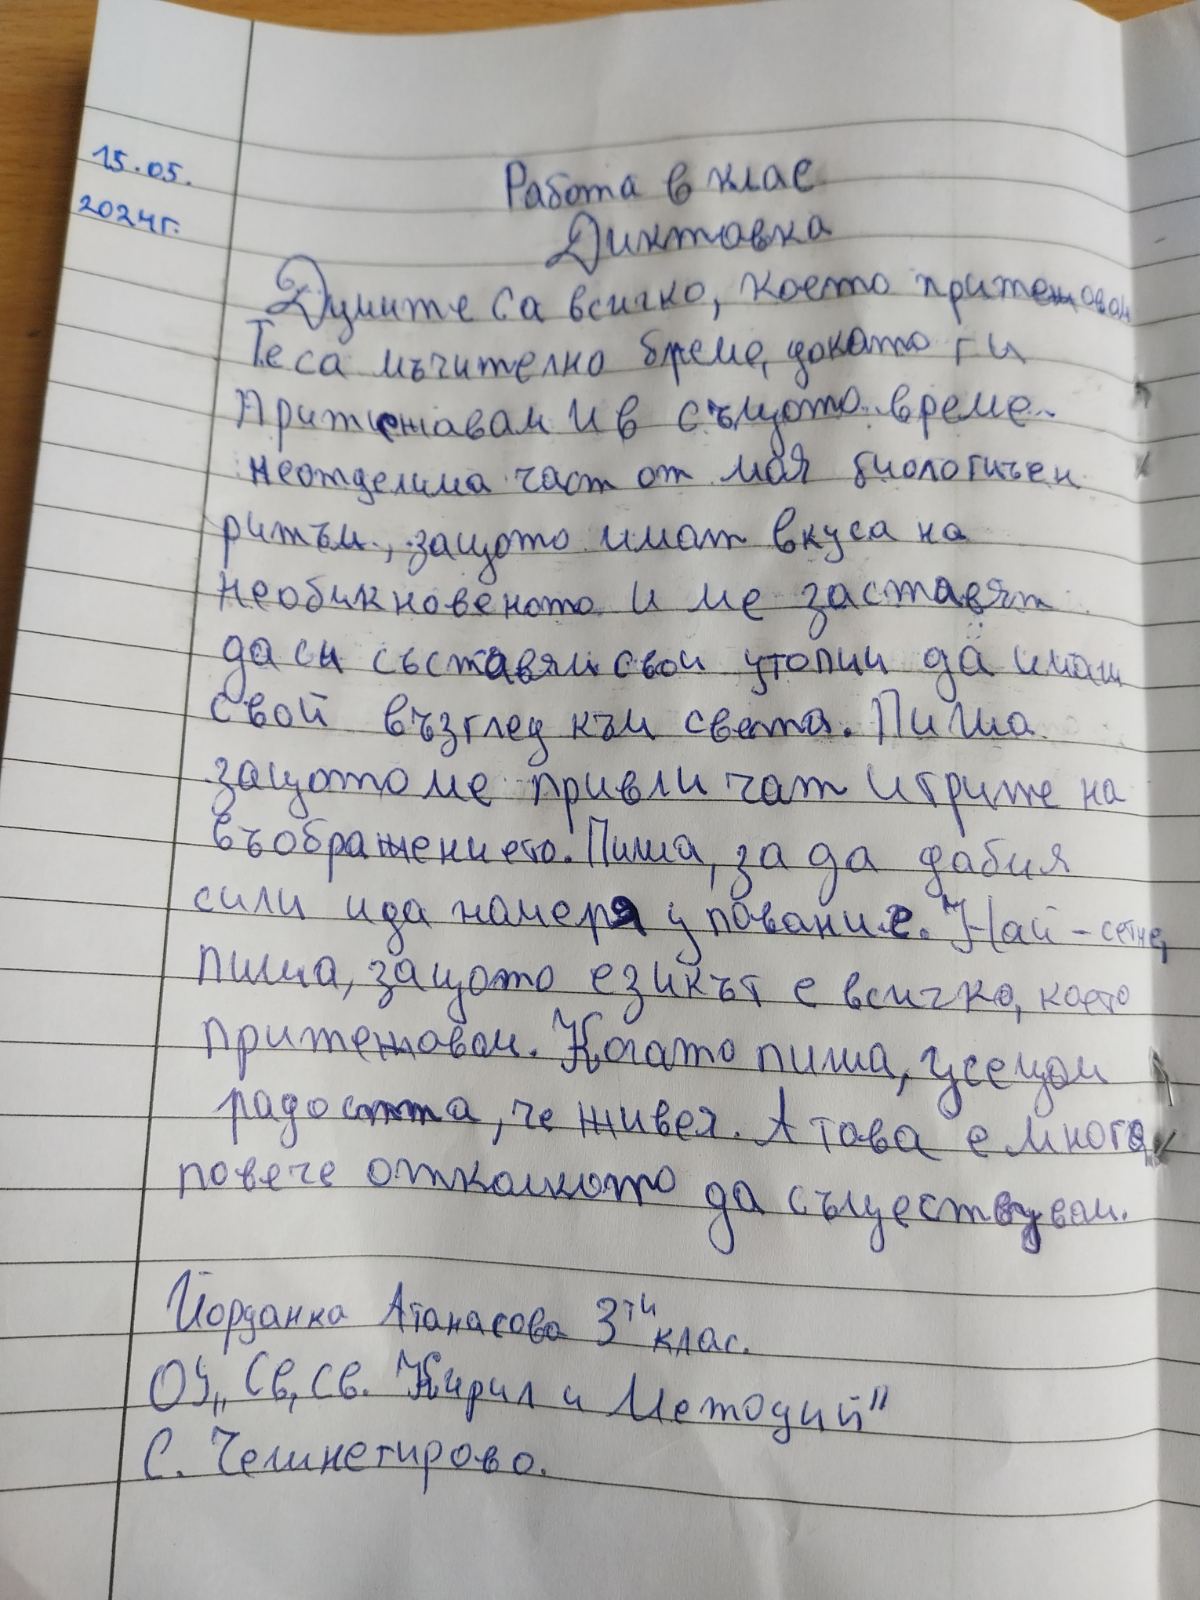 15.05.
2024г.
Работа в клас
Диктовка
Думите са всичко, което притежавам
Те са мъчително бреме, докато ги
притежавам и в същото време
неотделима част от моя биологичен
ритъм, защото имат вкуса на
необикновеното и ме заставят
да си съставям свои утопии да имам
свой възглед към света. Пиша
защото ме привличат игрите на
въображението. Пиша, за да дабия
сили и да намеря упование. Най-сетне,
пиша, защото езикът е всичко, което
притежавам. Когато пиша, усещам
радостта, че живея. А това е много
повече отколкото да съществувам.
Йорданка Атанасова 3ти клас.
ОУ„ Св, Св. Кирил и Методий"
С. Челинегирово.